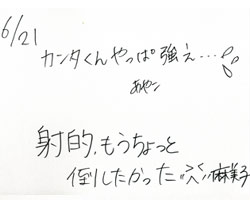 6/21
カンタくんやっぱ強え…
あやこ
射的、もうちょっと
倒したかった…
麻美子